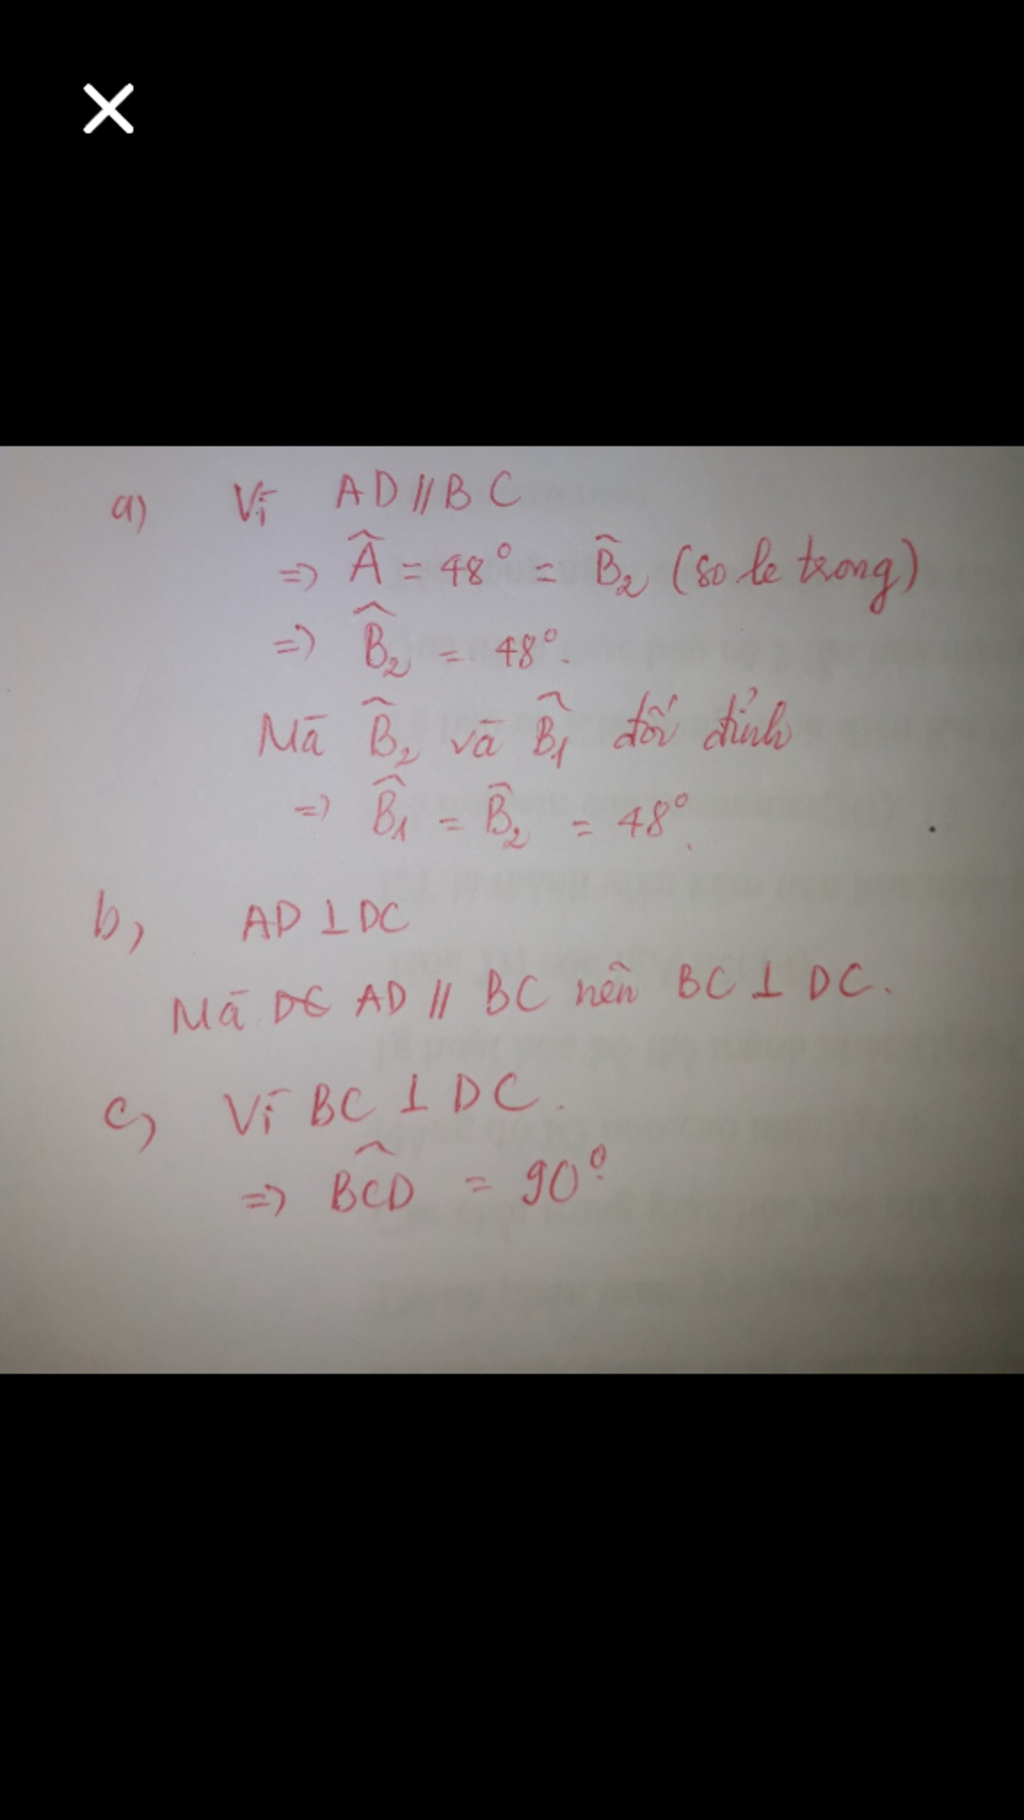 a) Vì AD // BC
=> Â = 48° = B̂₂ (so le trong)
=> B̂₂ = 48°.
Mà B̂₂ và B̂₁ đối đỉnh
=> B̂₁ = B̂₂ = 48°.
b, AD ⊥ DC
Mà AD // BC nên BC ⊥ DC.
c, Vì BC ⊥ DC.
=> B̂CD = 90°